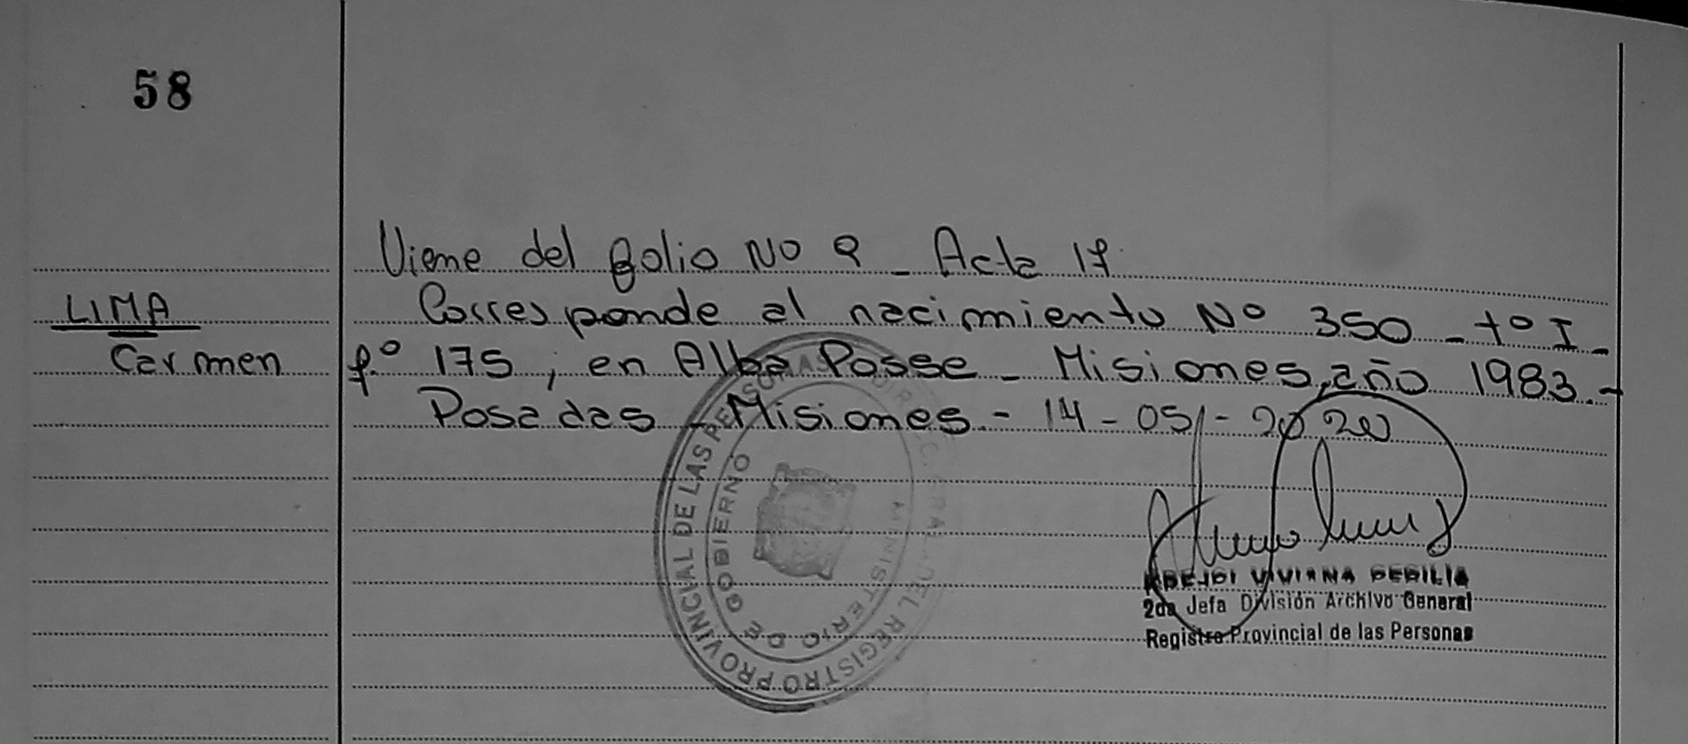 58
Viene del folio No 9 - Acta 17.
LIMA
Corresponde al nacimiento Nº 350 - tº I -
Carmen
fº 175, en Alba Posse - Misiones, año 1983.-
Posadas - Misiones.- 14-05-2020
REGISTRO PROVINCIAL DE LAS PERSONAS
MINISTERIO DE GOBIERNO
VIVIANA
2da Jefa División Archivo General
Registro Provincial de las Personas